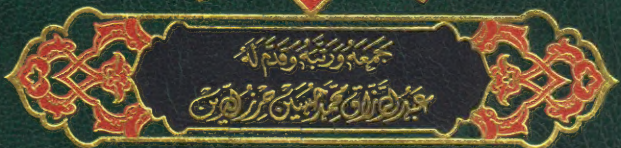 جمعه ورتبه وقدم له
عبد الرزاق محمد حسين حرز الدين